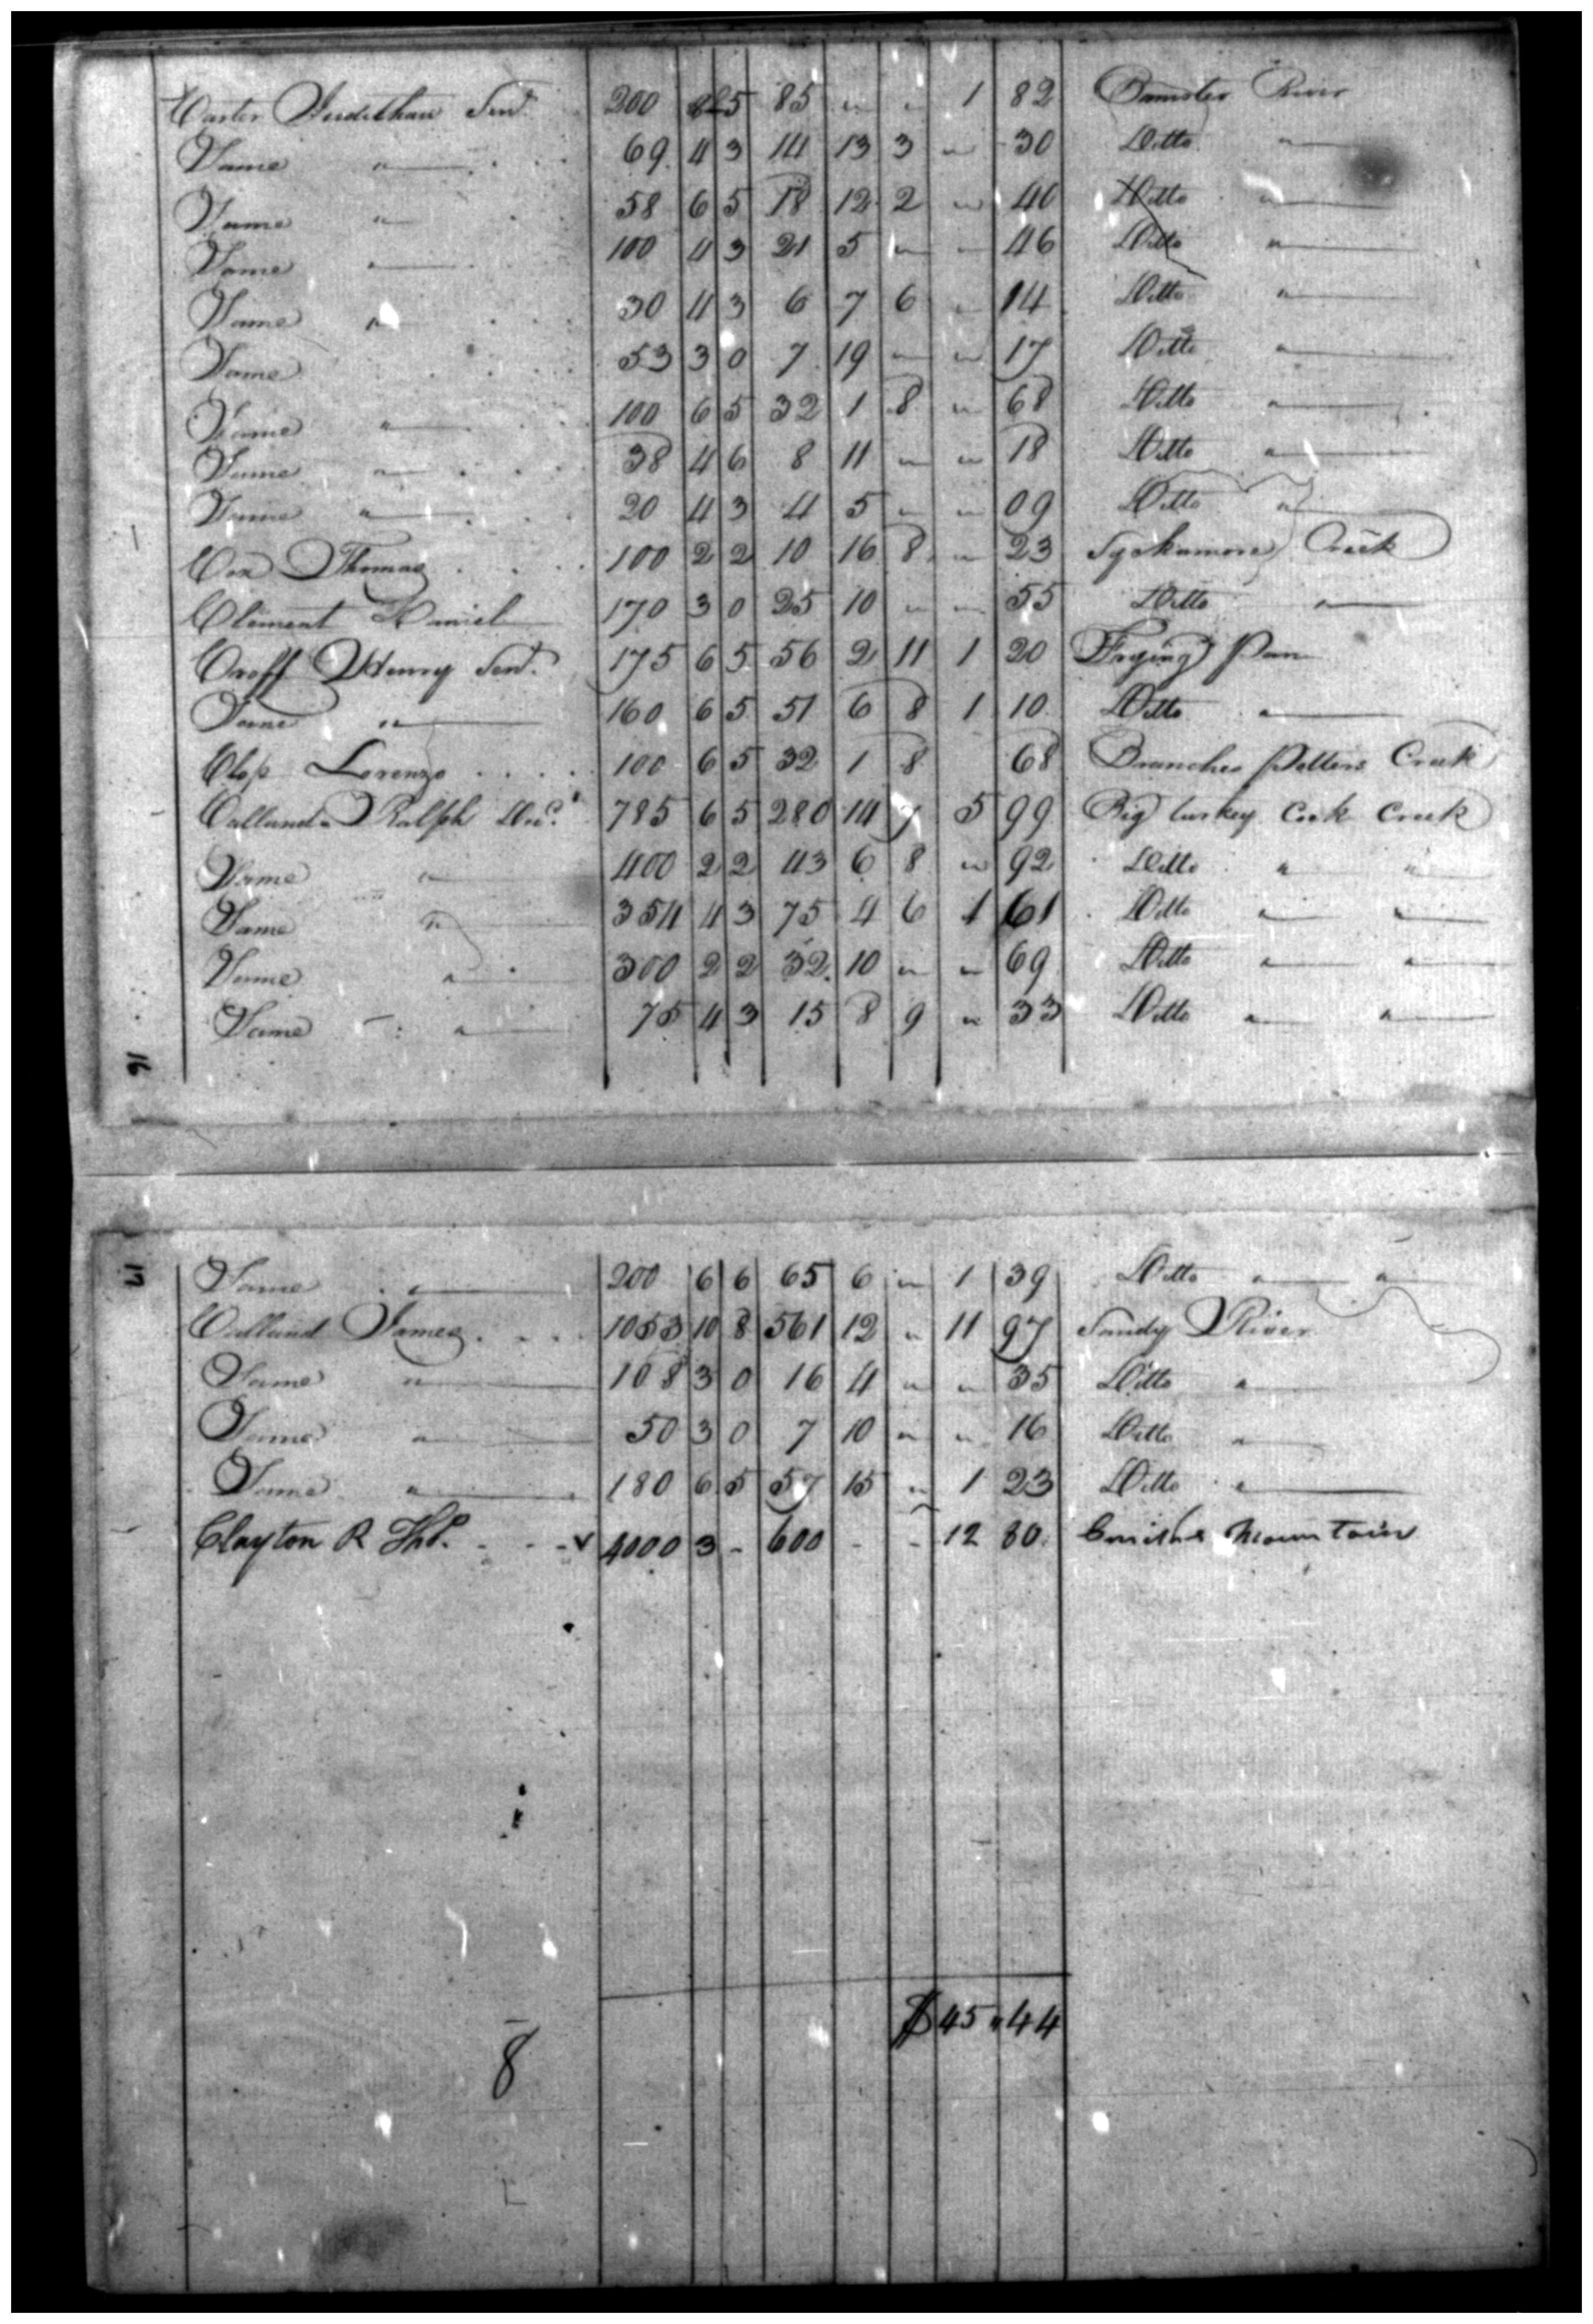 Carter Jedethan Senr. 200 8 5 85 " " 1 82 Banister River
Same " 69 4 3 14 13 3 " 30 Ditto "
Same " 58 6 5 18 12 2 " 40 Ditto "
Same " 100 4 3 21 5 " " 46 Ditto "
Same " 30 4 3 6 7 6 " 14 Ditto "
Same 53 3 0 7 19 " " 17 Ditto "
Same " 100 6 5 32 1 8 " 68 Ditto "
Same " 38 4 6 8 11 " " 18 Ditto "
Same " 20 4 3 4 5 " " 09 Ditto "
Cox Thomas 100 2 2 10 16 8 " 23 Syckamore Creek
Clement Daniel 170 3 0 25 10 " " 55 Ditto "
Croff Henry Senr. 175 6 5 56 2 11 1 20 Frying Pan
Same " 160 6 5 51 6 8 1 10 Ditto "
Clop Lorenzo 100 6 5 32 1 8 68 Branches Potters Creek
Calland Ralph Decd. 785 6 5 280 14 7 5 99 Big turkey Cock Creek
Same " 400 2 2 43 6 8 " 92 Ditto " "
Same " 354 4 3 75 4 6 1 61 Ditto " "
Same " 300 2 2 32 10 " " 69 Ditto " "
Same " 75 4 3 15 8 9 " 33 Ditto " "
16
17
Same " 200 6 6 65 6 " 1 39 Ditto " "
Calland James 1053 10 8 561 12 " 11 97 Sandy River
Same " 108 3 0 16 4 " " 35 Ditto "
Same " 50 3 0 7 10 " " 16 Ditto "
Same " 180 6 5 57 15 " 1 23 Ditto "
Clayton R Thos. - - - v 4000 3 - 600 - - 12 80 Smiths Mountain
$45 " 44
8